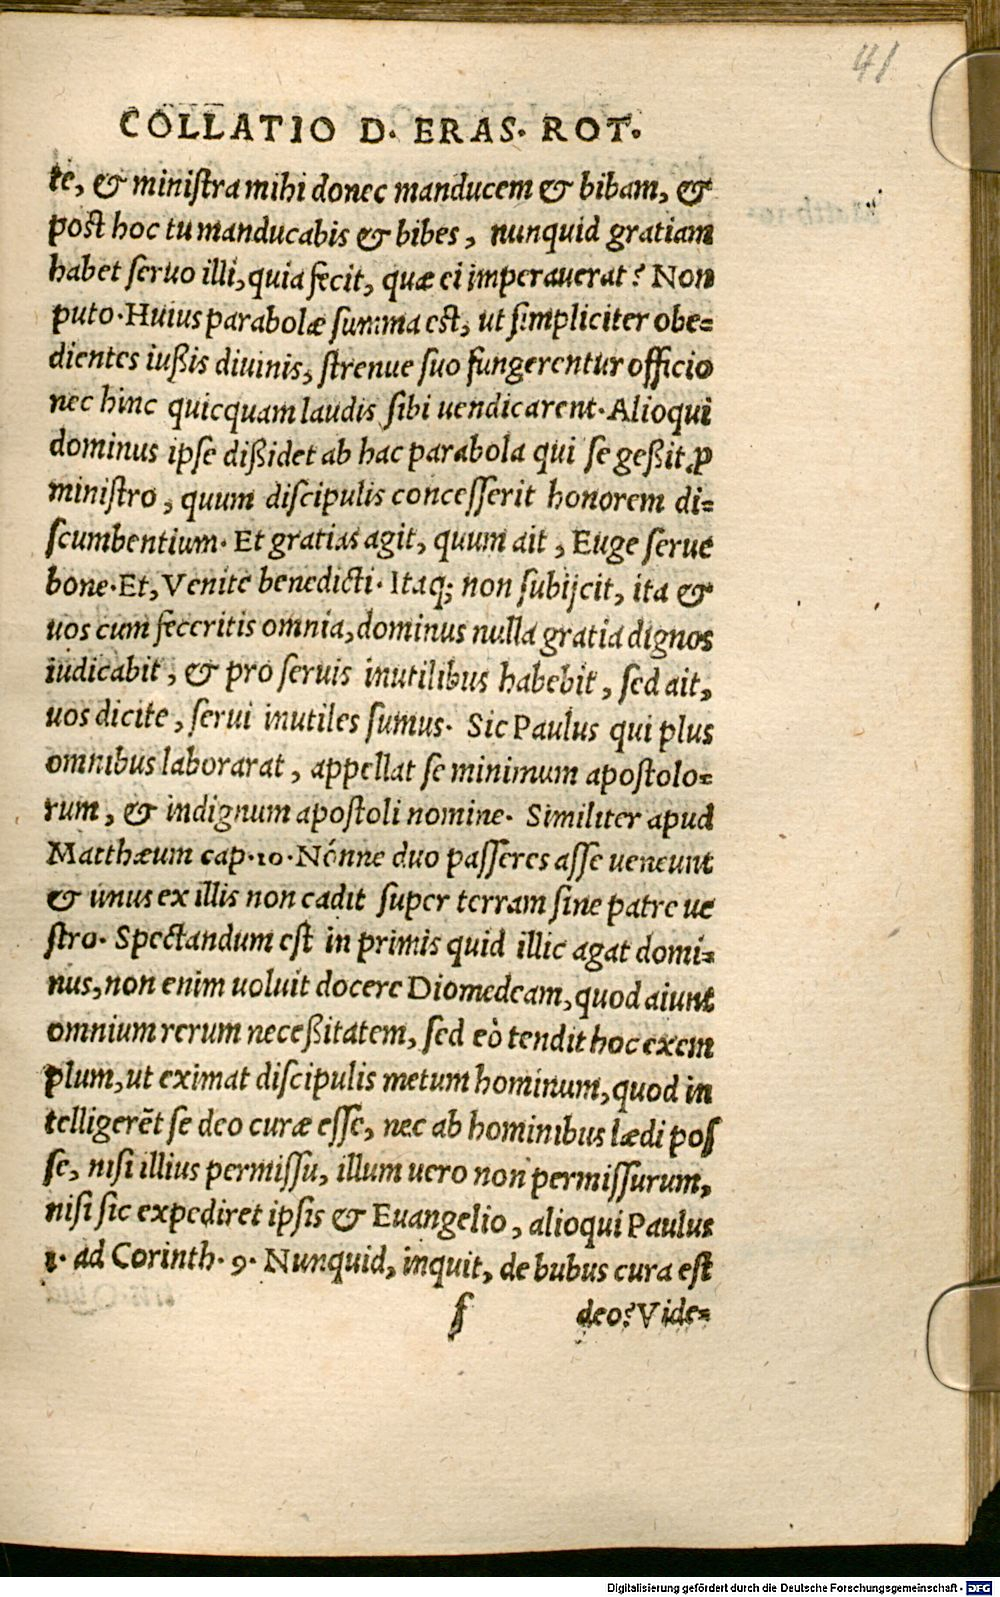 41
COLLATIO D. ERAS. ROT.
te, & ministra mihi donec manducem & bibam, &
post hoc tu manducabis & bibes, nunquid gratiam
habet seruo illi, quia fecit, quæ ei imperauerat? Non
puto. Huius parabolæ summa est, ut simpliciter obe=
dientes iußis diuinis, strenue suo fungerentur officio
nec hinc quicquam laudis sibi uendicarent. Alioqui
dominus ipse dißidet ab hac parabola qui se geßit ꝓ
ministro, quum discipulis concesserit honorem di=
scumbentium. Et gratias agit, quum ait, Euge serue
bone. Et, Venite benedicti. Itaq; non subijcit, ita &
uos cum feceritis omnia, dominus nulla gratia dignos
iudicabit, & pro seruis inutilibus habebit, sed ait,
uos dicite, serui inutiles sumus. Sic Paulus qui plus
omnibus laborarat, appellat se minimum apostolo=
rum, & indignum apostoli nomine. Similiter apud
Matthæum cap. 10. Nónne duo passeres asse ueneunt
& unus ex illis non cadit super terram sine patre ue
stro. Spectandum est in primis quid illic agat domi=
nus, non enim uoluit docere Diomedeam, quod aiunt
omnium rerum neceßitatem, sed eò tendit hoc exem
plum, ut eximat discipulis metum hominum, quod in
telligerēt se deo curæ esse, nec ab hominibus lædi pos
se, nisi illius permissu, illum uero non permissurum,
nisi sic expediret ipsis & Euangelio, alioqui Paulus
1. ad Corinth. 9. Nunquid, inquit, de bubus cura est
f deo? Vide=
Digitalisierung gefördert durch die Deutsche Forschungsgemeinschaft - DFG